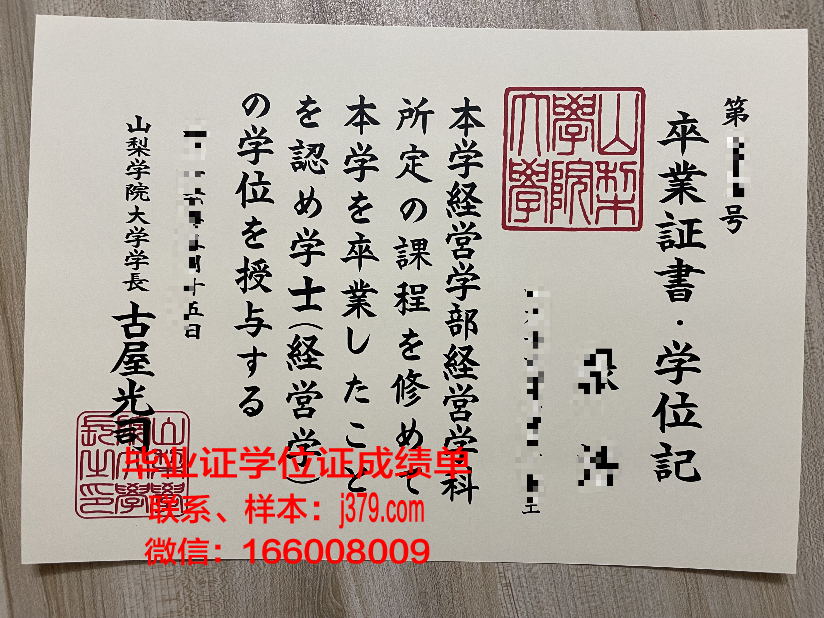 第 号
卒業証書・学位記
山梨
學院
大學
本学経営学部経営学科
所定の課程を修めて
本学を卒業したこと
を認め学士(経営学)
の学位を授与する
十五日
山梨学院大学学長 古屋光司
毕业证学位证成绩单
联系、样本：j379.com
微信：166008009